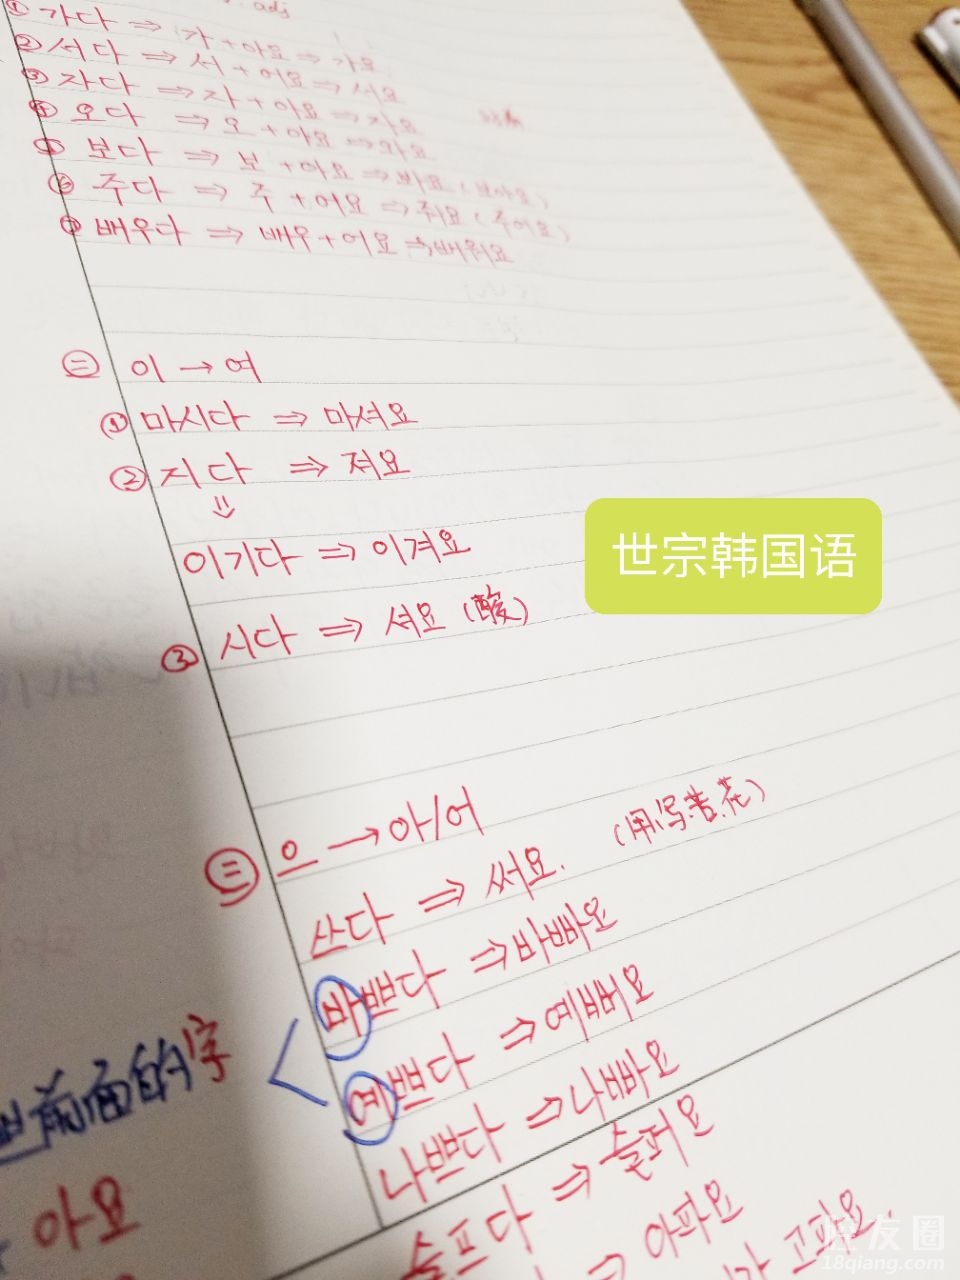 adj
① 가다 ⇒ 가+아요 ⇒ 가요
② 서다 ⇒ 서+어요 ⇒ 서요
③ 자다 ⇒ 자+아요 ⇒ 자요
④ 오다 ⇒ 오+아요 ⇒ 와요
⑤ 보다 ⇒ 보+아요 ⇒ 봐요 (보아요)
⑥ 주다 ⇒ 주+어요 ⇒ 줘요 (주어요)
⑦ 배우다 ⇒ 배우+어요 ⇒ 배워요
㊁ 이 → 여
① 마시다 ⇒ 마셔요
② 지다 ⇒ 져요
⇓
이기다 ⇒ 이겨요
世宗韩国语
③ 시다 ⇒ 셔요 (酸)
㊂ 으 → 아/어
쓰다 ⇒ 써요. (用,写,苦,花)
바쁘다 ⇒ 바빠요
예쁘다 ⇒ 예뻐요
前面的字
나쁘다 ⇒ 나빠요
아요
슬프다 ⇒ 슬퍼요
⇒ 아파요
고파요.
友圈
18qiang.com